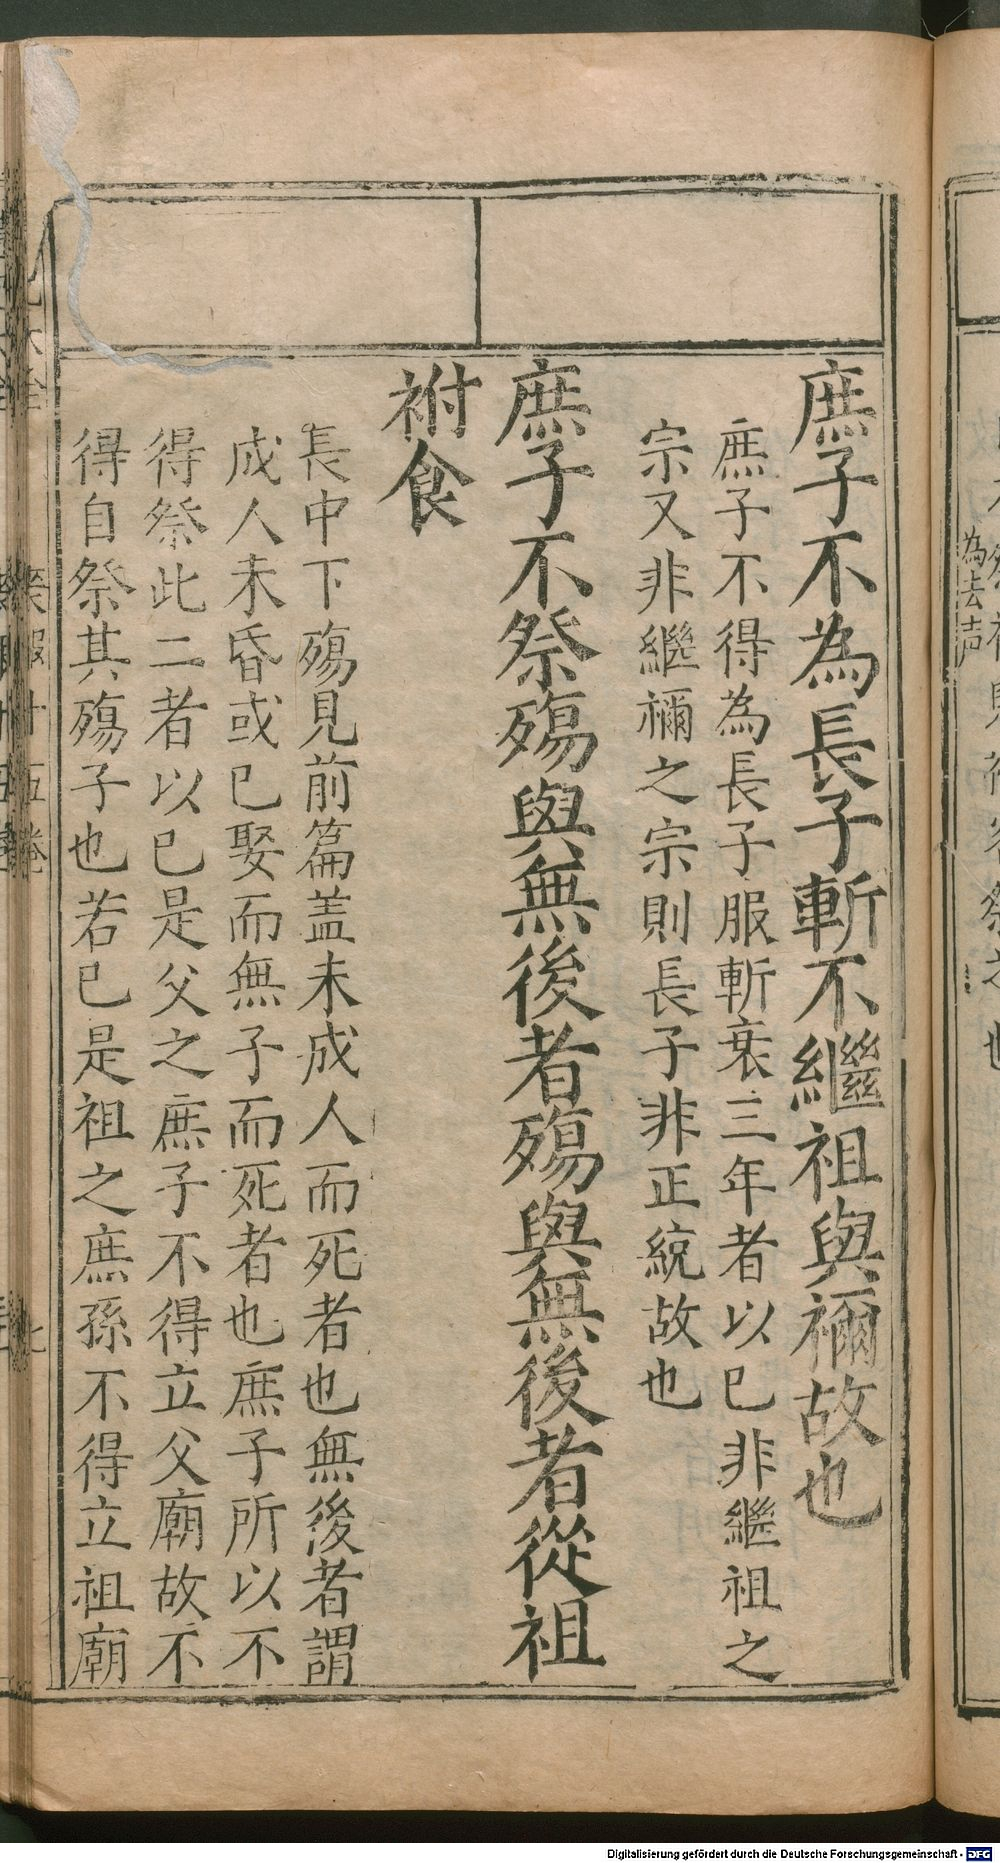 庶子不為長子斬不繼祖與禰故也
庶子不得為長子服斬衰三年者以已非繼祖之
宗又非繼禰之宗則長子非正統故也
庶子不祭殤與無後者殤與無後者從祖
祔食
長中下殤見前篇盖未成人而死者也無後者謂
成人未昏或已娶而無子而死者也庶子所以不
得祭此二者以已是父之庶子不得立父廟故不
得自祭其殤子也若已是祖之庶孫不得立祖廟
Digitalisierung gefördert durch die Deutsche Forschungsgemeinschaft - DFG